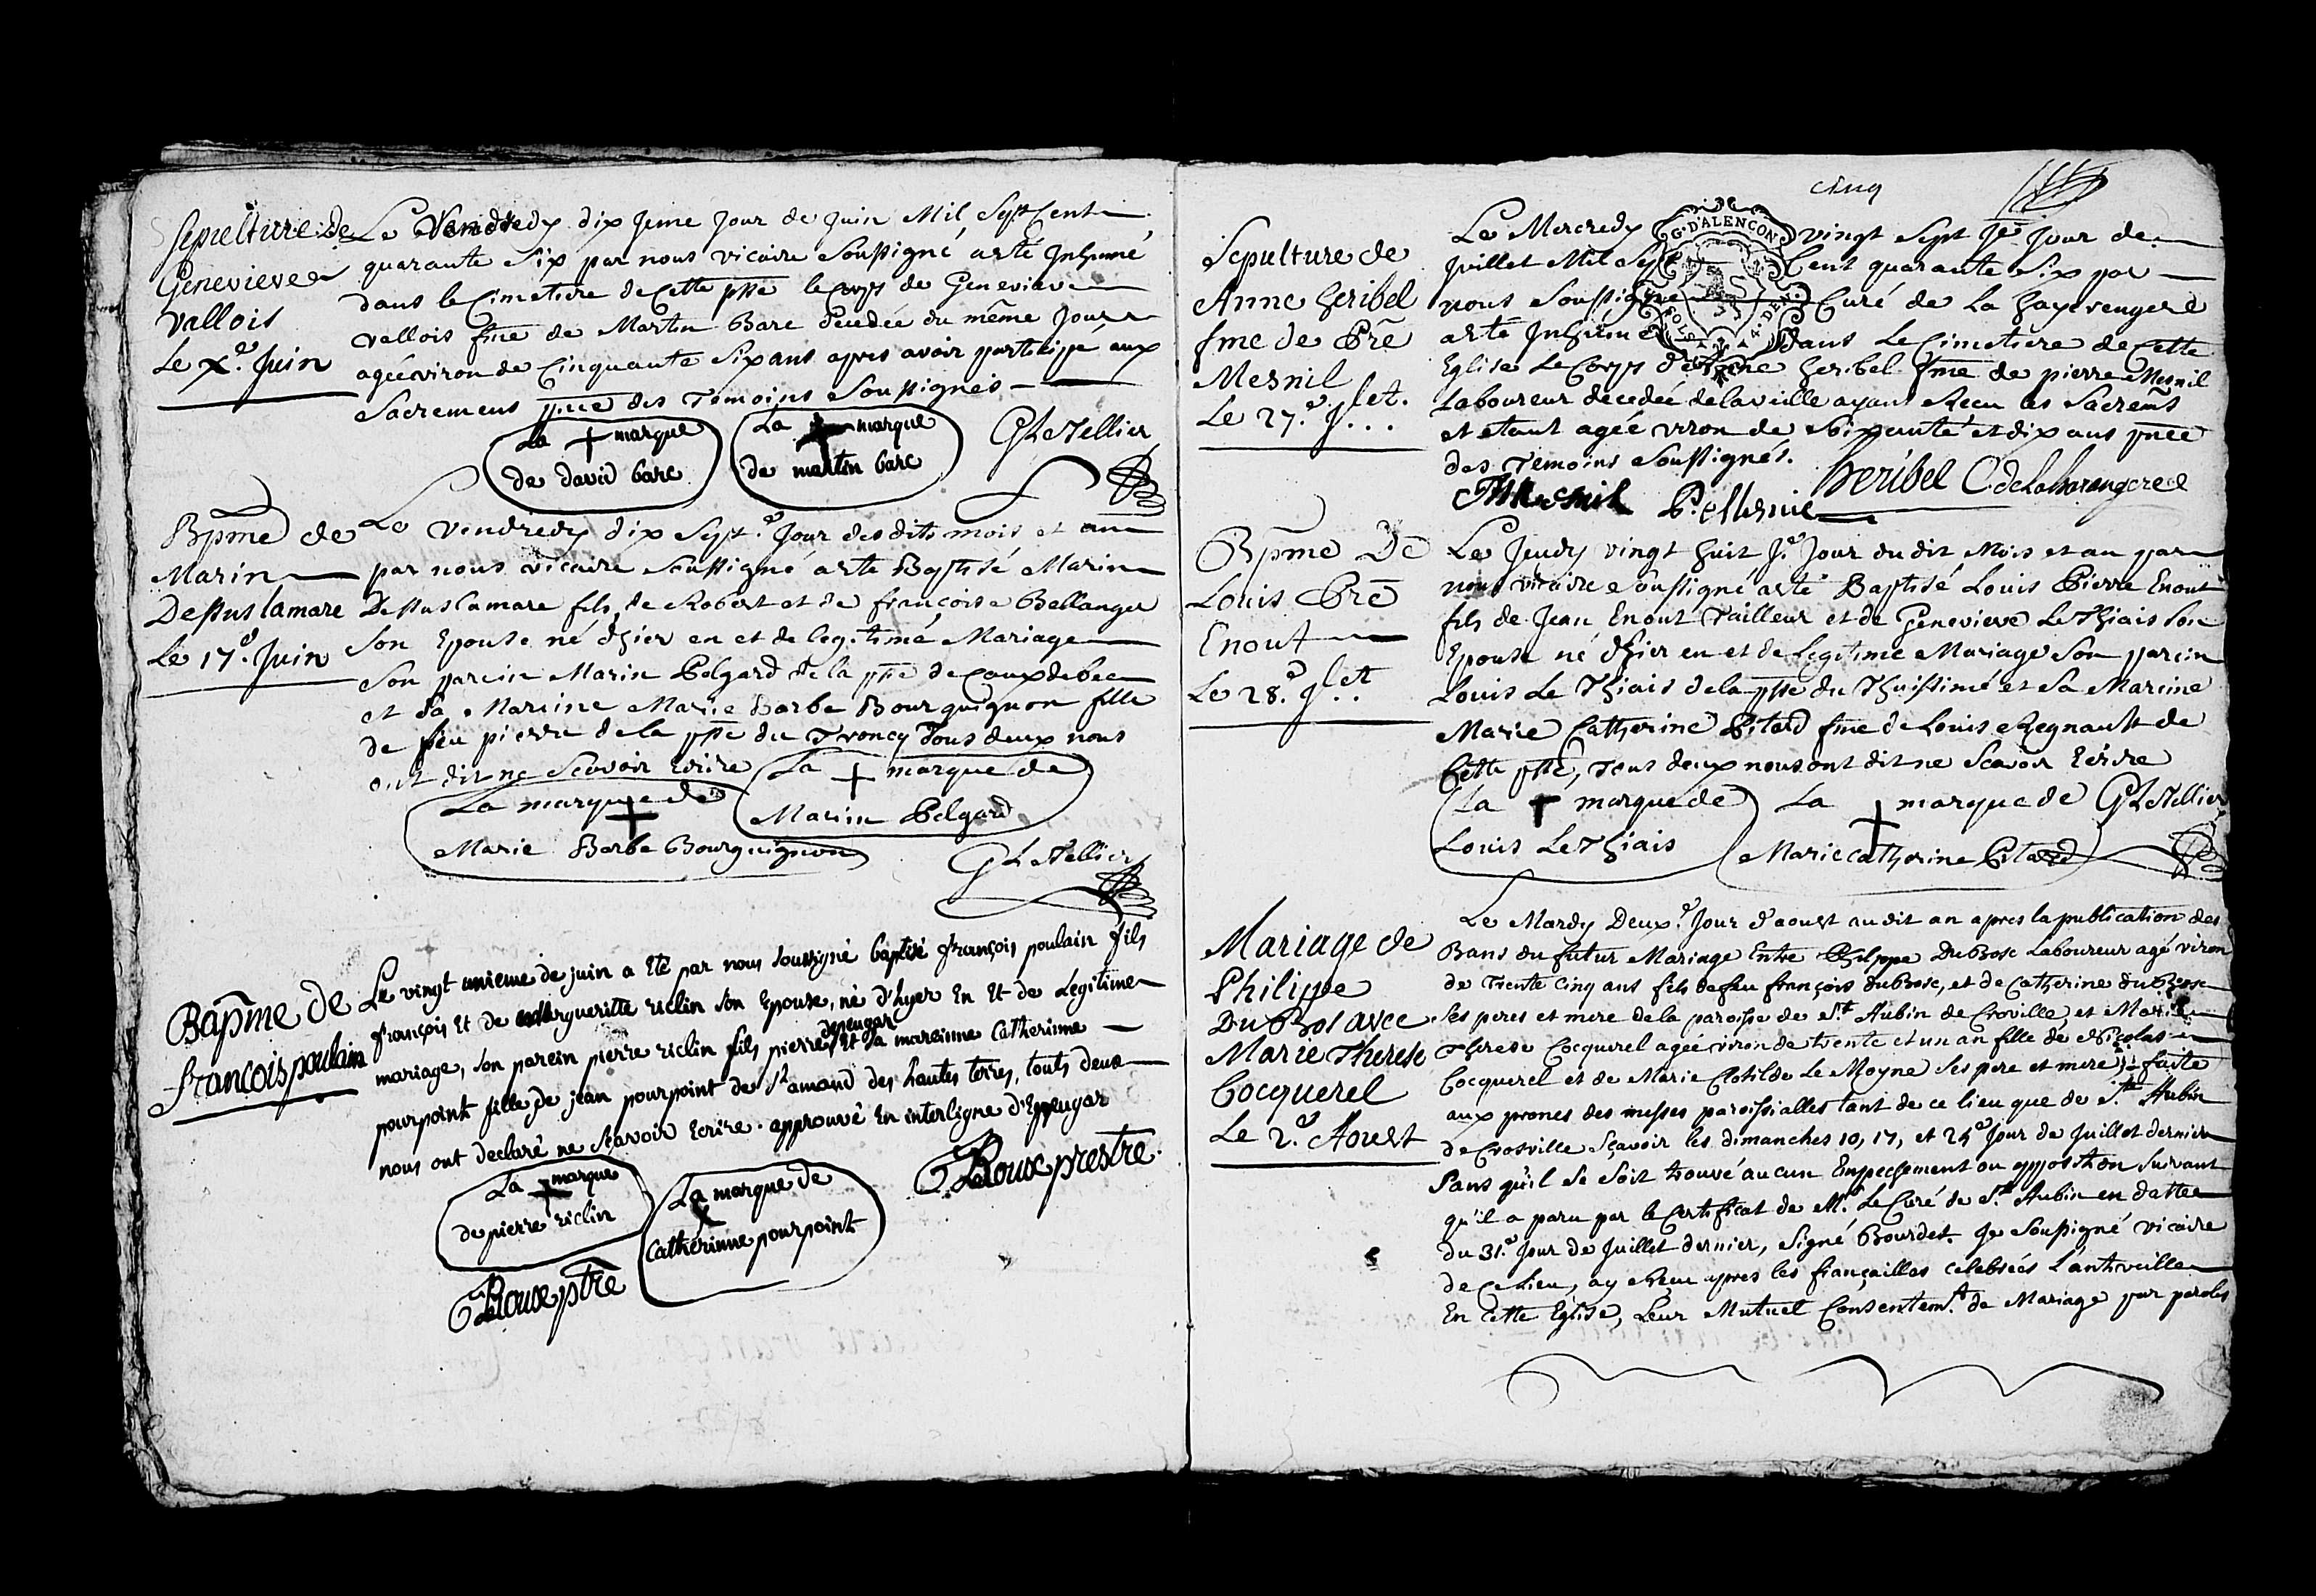 Sepulture de
Genevieve
Vallois
Le X.e Juin
Le Vendredy dix Jeme Jour de Juin Mil Sept Cent
quarante Six par nous vicaire Soussigné a esté Inhumé
dans le Cimetiere de Cette psse le Corps de Genevieve
vallois fme de Martin Barc decedée du même Jour
agée viron de Cinquante Six ans apres avoir participé aux
Sacremens pnce des Temoins Soussignés
La + marque
de david barc
La + marque
de martin barc
G Le Tellier
Bpme de
Marin
Dessuslamare
Le 17.e Juin
Le Vendredy dix Sept.e Jour desdits mois et an
par nous vicaire Soussigné a esté Baptisé Marin
Dessuslamare fils de Robert et de françoise Bellanger
Son Epouse né d'hier en et de legitimé Mariage
Son parein Marin Pelgard de la psse de Caux de bec
et Sa Mareine Marie Barbe Bourguignon fille
de feu pierre de la psse du Troncq Tous deux nous
ont dit ne Scavoir Ecrire
La + marque de
Marin Pelgard
La marque de
+
Marie Barbe Bourguignon
G Le Tellier
Bapme de
françois poulain
Le vingt unieme de juin a Eté par nous soussigné baptisé françois poulain fils
françois Et de Marguerite riclin son Epouse, né d'hyer En Et de Legitime
mariage, son parein pierre riclin fils pierre Et sa mareinne Catherinne
depeugar
pourpoint fille de jean pourpoint de St amand des hautes terres, touts deux
nous ont declaré ne scavoir Ecrire. approuvé En interligne d'Epeugar
La + marque
de pierre riclin
La marque de
+
Catherinne pourpoint
Roux prestre
Roux ptre
cinq
G. D'ALENCON
Sepulture de
Anne heribel
fme de Pre
Mesnil
Le 27.e Jlet.
Le Mercredy vingt Sept Je Jour de
Juillet Mil Sept Cent quarante Six par
nous Soussigné Curé de La hayerengerd
a esté Inhumé dans Le Cimetiere de Cette
Eglise Le Corps d'Anne heribel fme de pierre Mesnil
Laboureur decedée de la veille ayant Recu les Sacremts
et etant agée viron de Soixante et dix ans pnce
des Temoins Soussignés.
heribel C. de Laharangere
P. Mesnil
Bpme De
Louis Pre
Enout
Le 28.e Jlet
Le Jeudy vingt huit J.e Jour du dit Mois et an par
nous vicaire Soussigné a esté Baptisé Louis Pierre Enout
fils de Jean Enout Tailleur et de Genevieve Le Thiais Son
Epouse né d'hier en et de Legitime Mariage Son parein
Louis Le Thiais de la psse du Thuissimé et Sa Mareine
Marie Catherine Pitard fme de Louis Regnault de
Cette psse, Tous deux nous ont dit ne Scavoir Ecrire
La + marque de
Louis Le Thiais
La + marque de
Marie catherine Pitard
G Le Tellier
Mariage de
Philippe
DuBosc avec
Marie Therese
Cocquerel
Le 2.e Aoust
Le Mardy Deux.e Jour d'aoust au dit an apres la publication des
Bans du futur Mariage Entre Philippe DuBosc Laboureur agé viron
de Trente Cinq ans fils de feu françois duBosc, et de Catherine duBosc
Ses peres et mere de la paroisse de St Aubin de Croville et Marie
Therese Cocquerel agée viron de trente et un an fille de Nicolas
Cocquerel et de Marie Clotilde Le Moyne Ses pere et mere faite
aux prones des messes paroissialles tant de ce lieu que de St Aubin
de Crosville Sçavoir les dimanches 10, 17, et 24e Jour de Juillet dernier
Sans qu'il Se Soit trouvé aucun Empechement ou opposition Suivant
qu'il a paru par le Certificat de Mr Le Curé de St Aubin en datte
du 31.e Jour de Juillet dernier, Signé Bourdet. Je Soussigné vicaire
de Ce Lieu, ay Receu apres les fiançailles celebreés L'antiveille
En Cette Eglise, Leur Mutuel Consentemt de Mariage par paroles